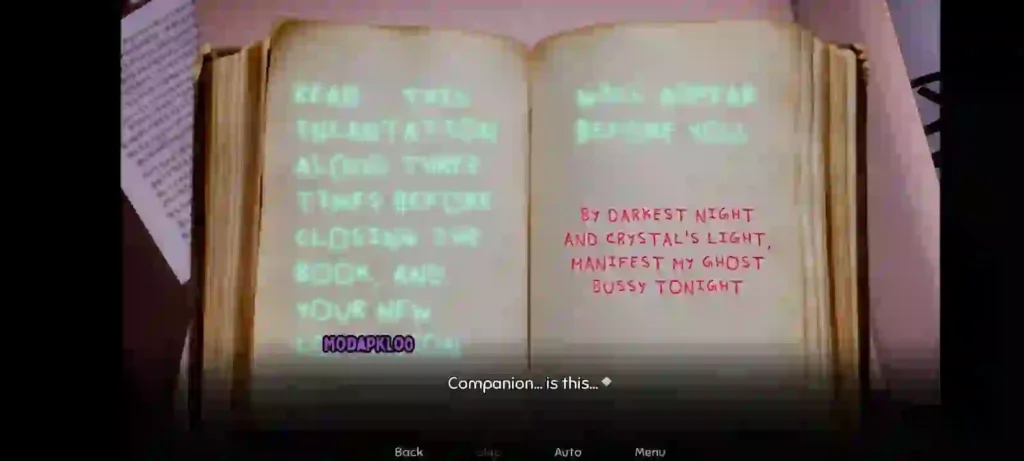 READ THIS
INCANTATION
ALOUD THREE
TIMES BEFORE
CLOSING THE
BOOK, AND
YOUR NEW
MODAPKLOO
WILL APPEAR
BEFORE YOU.
BY DARKEST NIGHT
AND CRYSTAL'S LIGHT,
MANIFEST MY GHOST
BUSSY TONIGHT
Companion... is this...
Back Skip Auto Menu